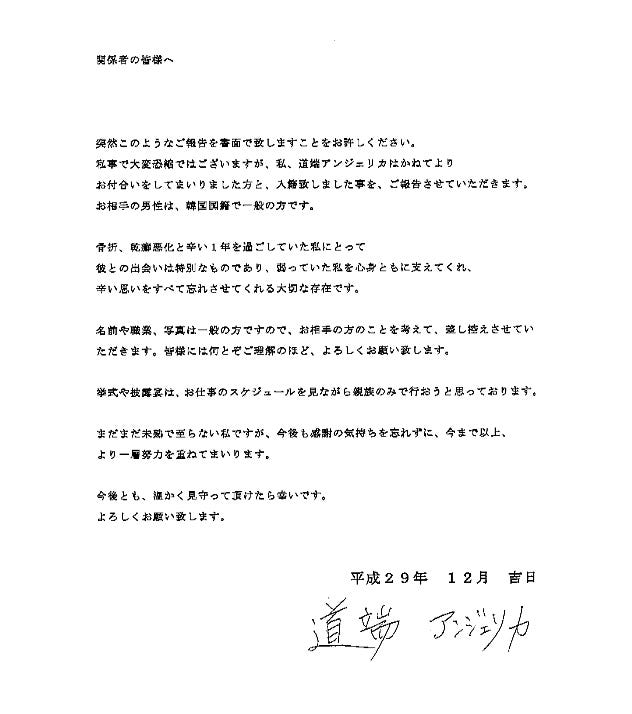 関係者の皆様へ
突然このようなご報告を書面で致しますことをお許しください。
私事で大変恐縮ではございますが、私、道端アンジェリカはかねてより
お付合いをしてまいりました方と、入籍致しました事を、ご報告させていただきます。
お相手の男性は、韓国国籍で一般の方です。
骨折、乾癬悪化と辛い１年を過ごしていた私にとって
彼との出会いは特別なものであり、弱っていた私を心身ともに支えてくれ、
辛い思いをすべて忘れさせてくれる大切な存在です。
名前や職業、写真は一般の方ですので、お相手の方のことを考えて、差し控えさせてい
ただきます。皆様には何とぞご理解のほど、よろしくお願い致します。
挙式や披露宴は、お仕事のスケジュールを見ながら親族のみで行おうと思っております。
まだまだ未熟で至らない私ですが、今後も感謝の気持ちを忘れずに、今まで以上、
より一層努力を重ねてまいります。
今後とも、温かく見守って頂けたら幸いです。
よろしくお願い致します。
平成２９年　１２月　吉日
道端 アンジェリカ